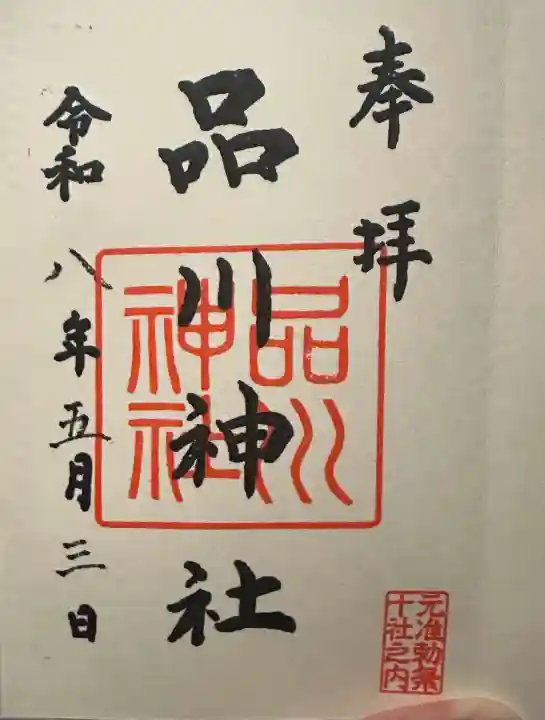 奉拝
品川神社
令和八年五月三日
品川
神社
元准勅祭
十社之内